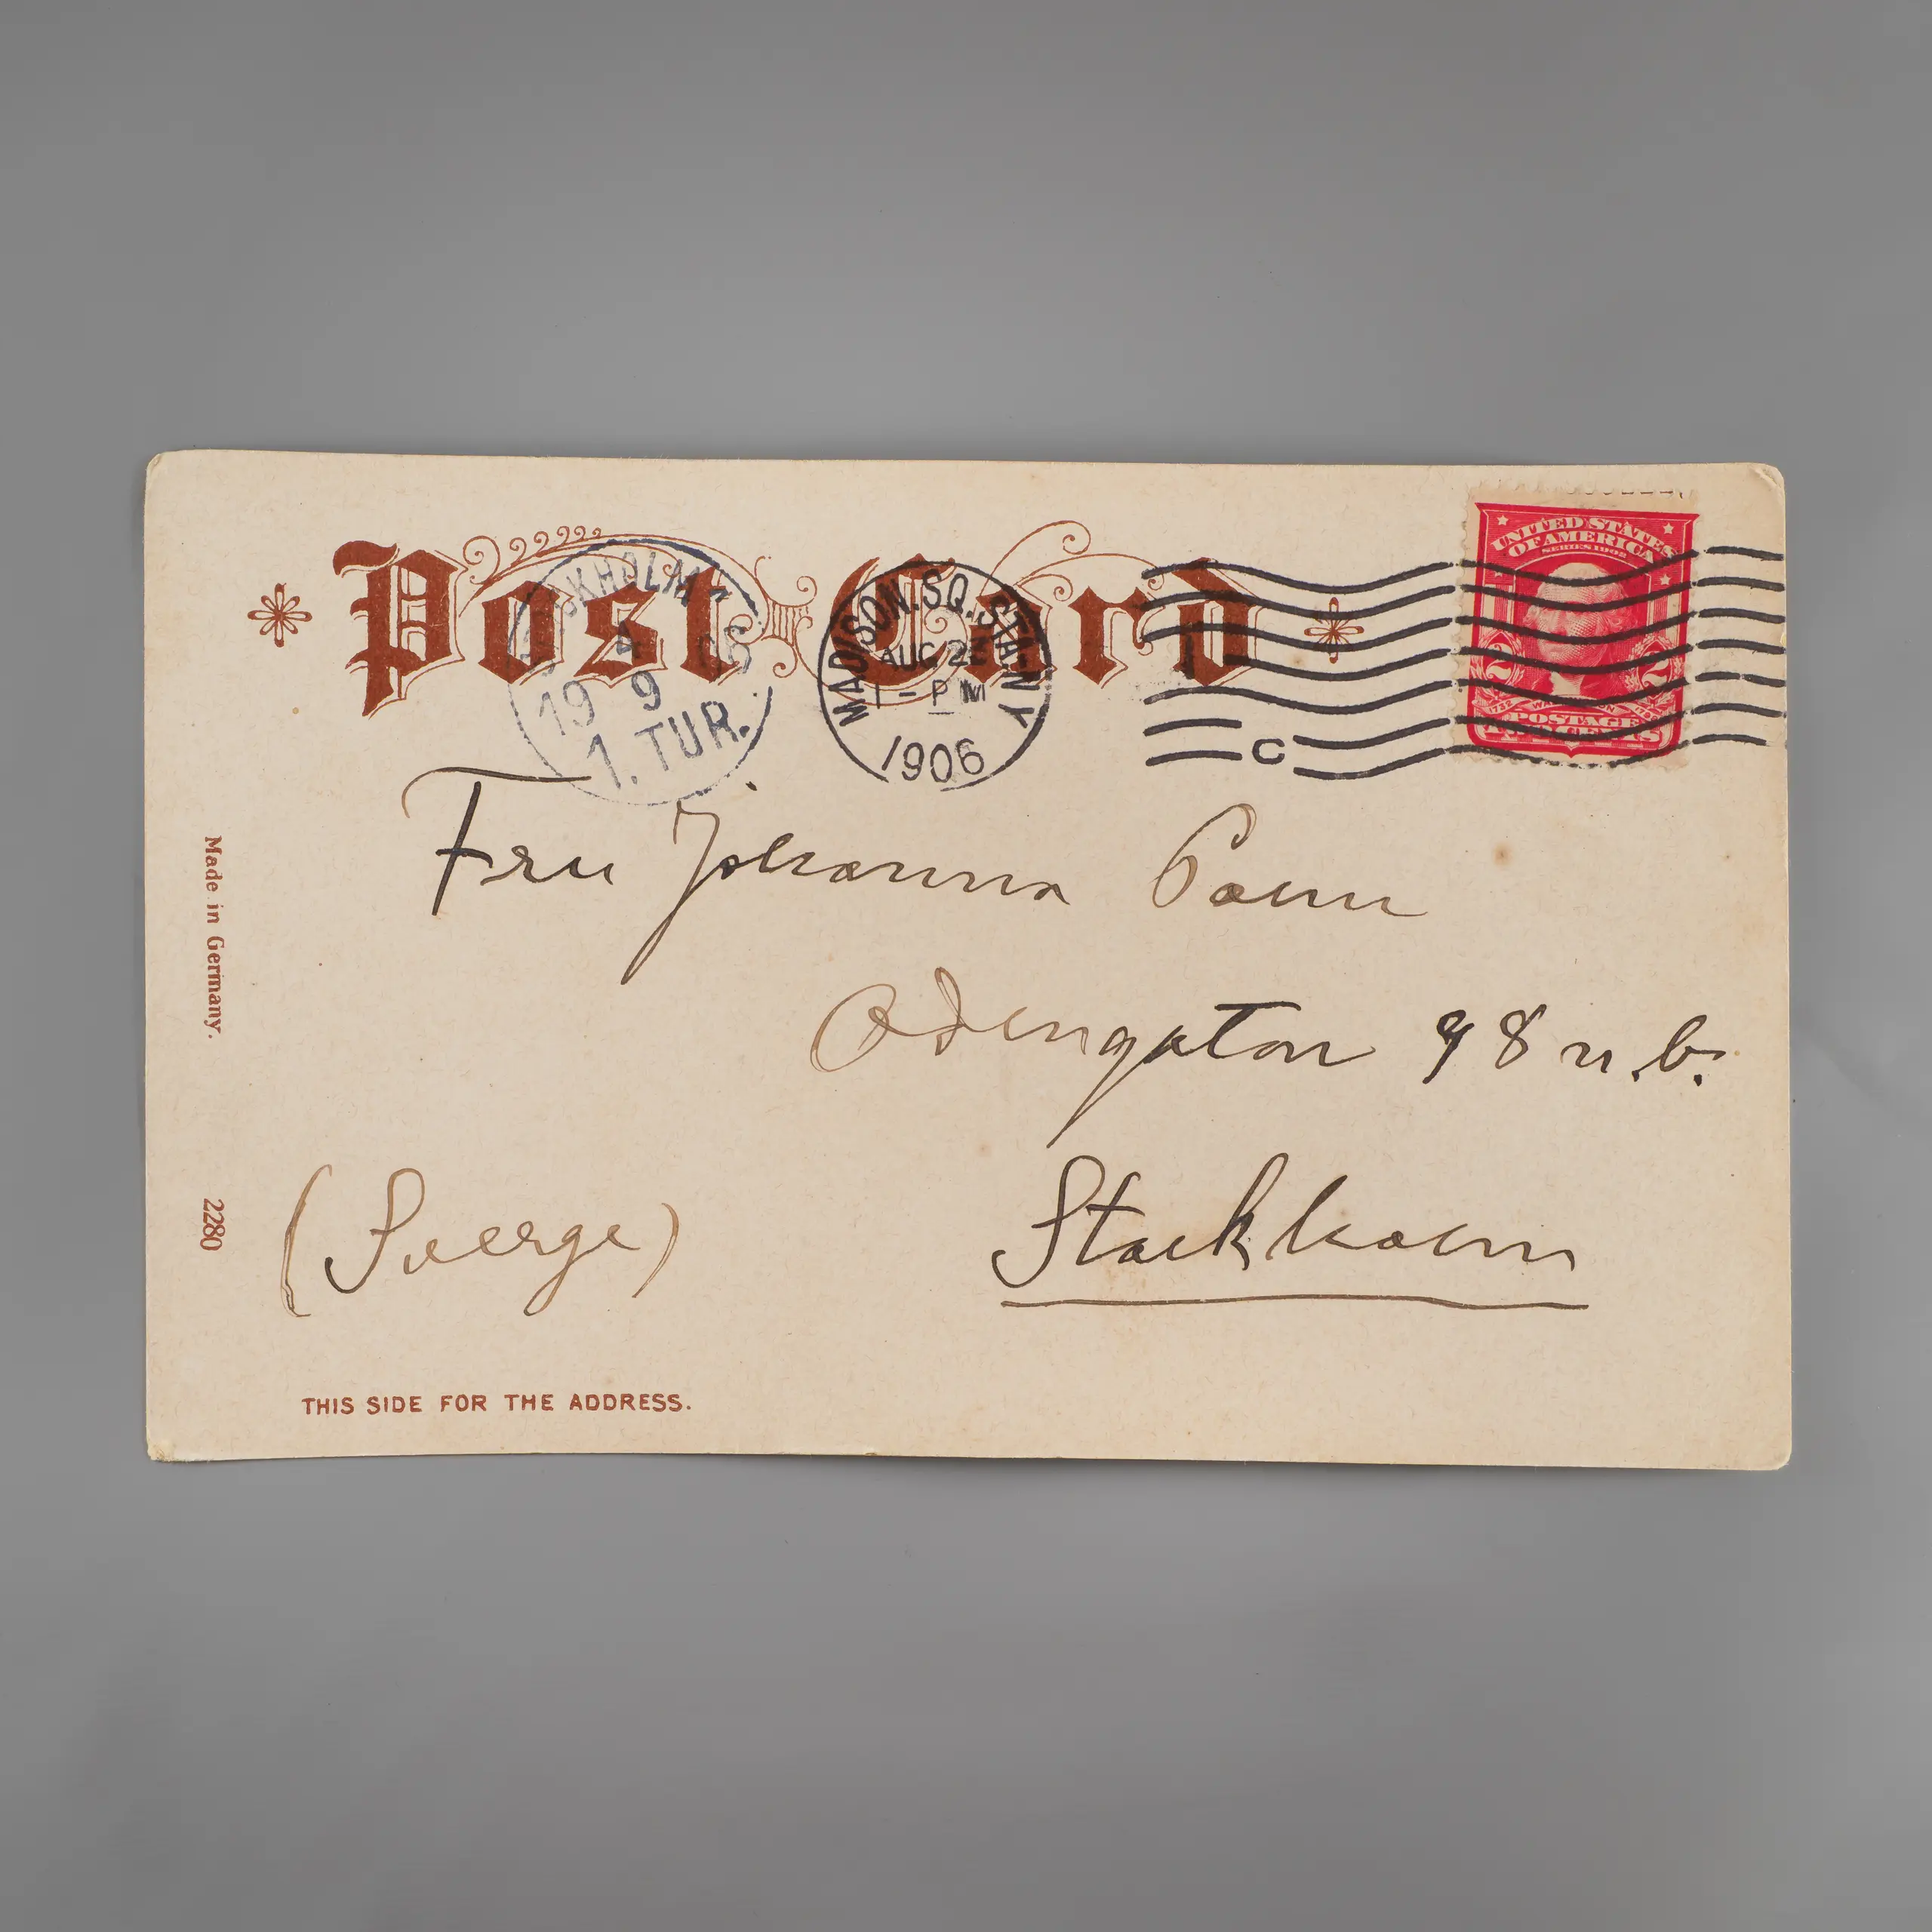 Post Card
UNITED STATES
OF AMERICA
SERIES 1902
2 2
POSTAGE
TWO CENTS
STOCKHOLM
4
19 9 06
1. TUR.
MADISON SQ. STA. N.Y.
AUG 2
1 - PM
1906
C
Fru Johanna
Odengatan 98 n.b.
Stockholm
(Sverge)
Made in Germany.
2280
THIS SIDE FOR THE ADDRESS.